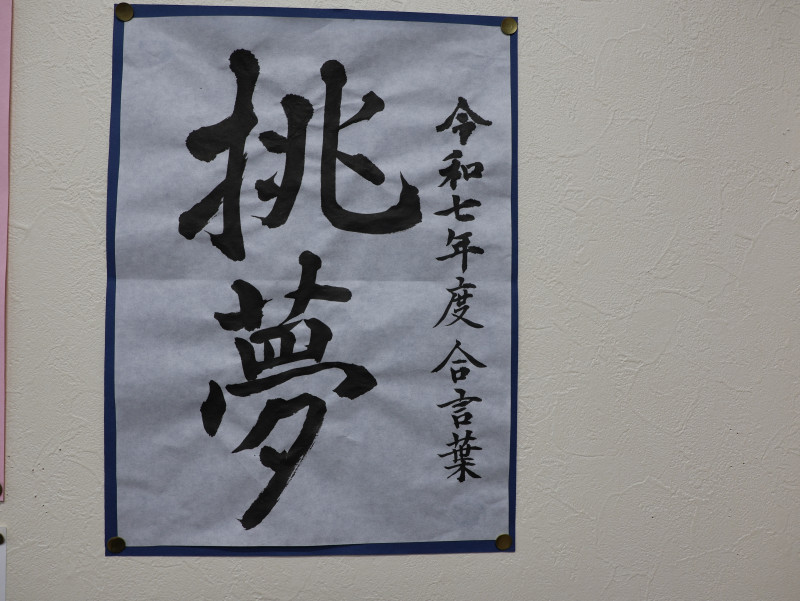 令和七年度 合言葉
挑夢